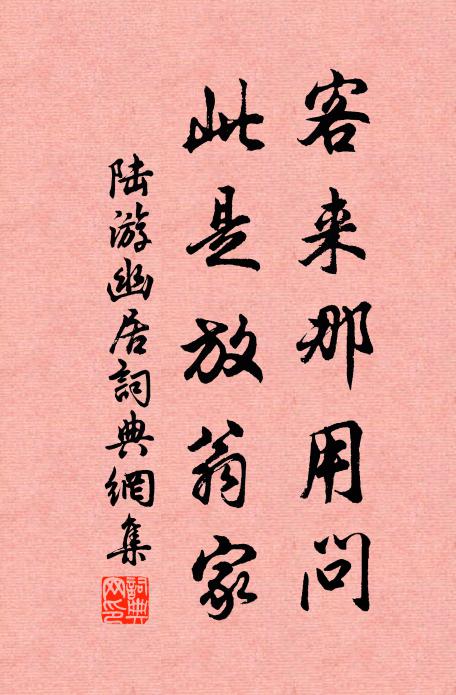 客来那用问
此是放翁家
陆游幽居詞典網集
詞典网印